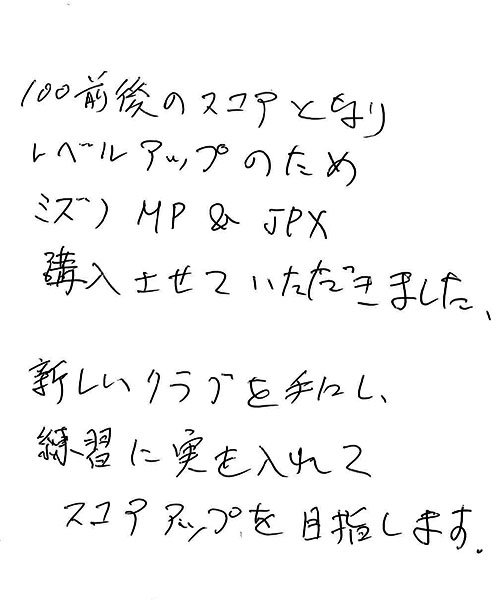 100前後のスコアとなり
レベルアップのため
ミズノ MP & JPX
購入させていただきました、
新しいクラブを手にし、
練習に実を入れて
スコアアップを目指します.